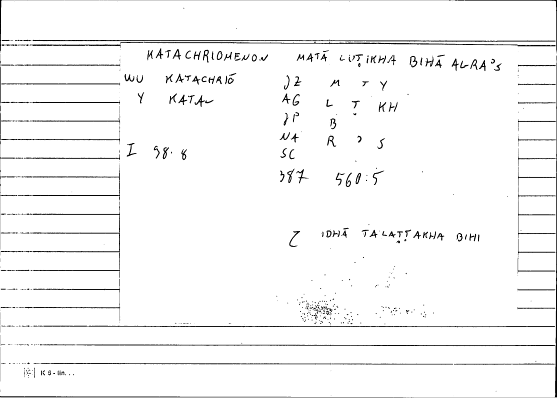 KATACHRIOMENON MATĀ LUṬIKHA BIHĀ ALRAʾS
WU KATACHRIŌ JZ M T Y
Y KATAL AG L Ṭ KH
JP B
NA R ʾ S
I 98.8 SC
387 560:5
Z IDHĀ TALAṬṬAKHA BIHI
K 9 - lin...